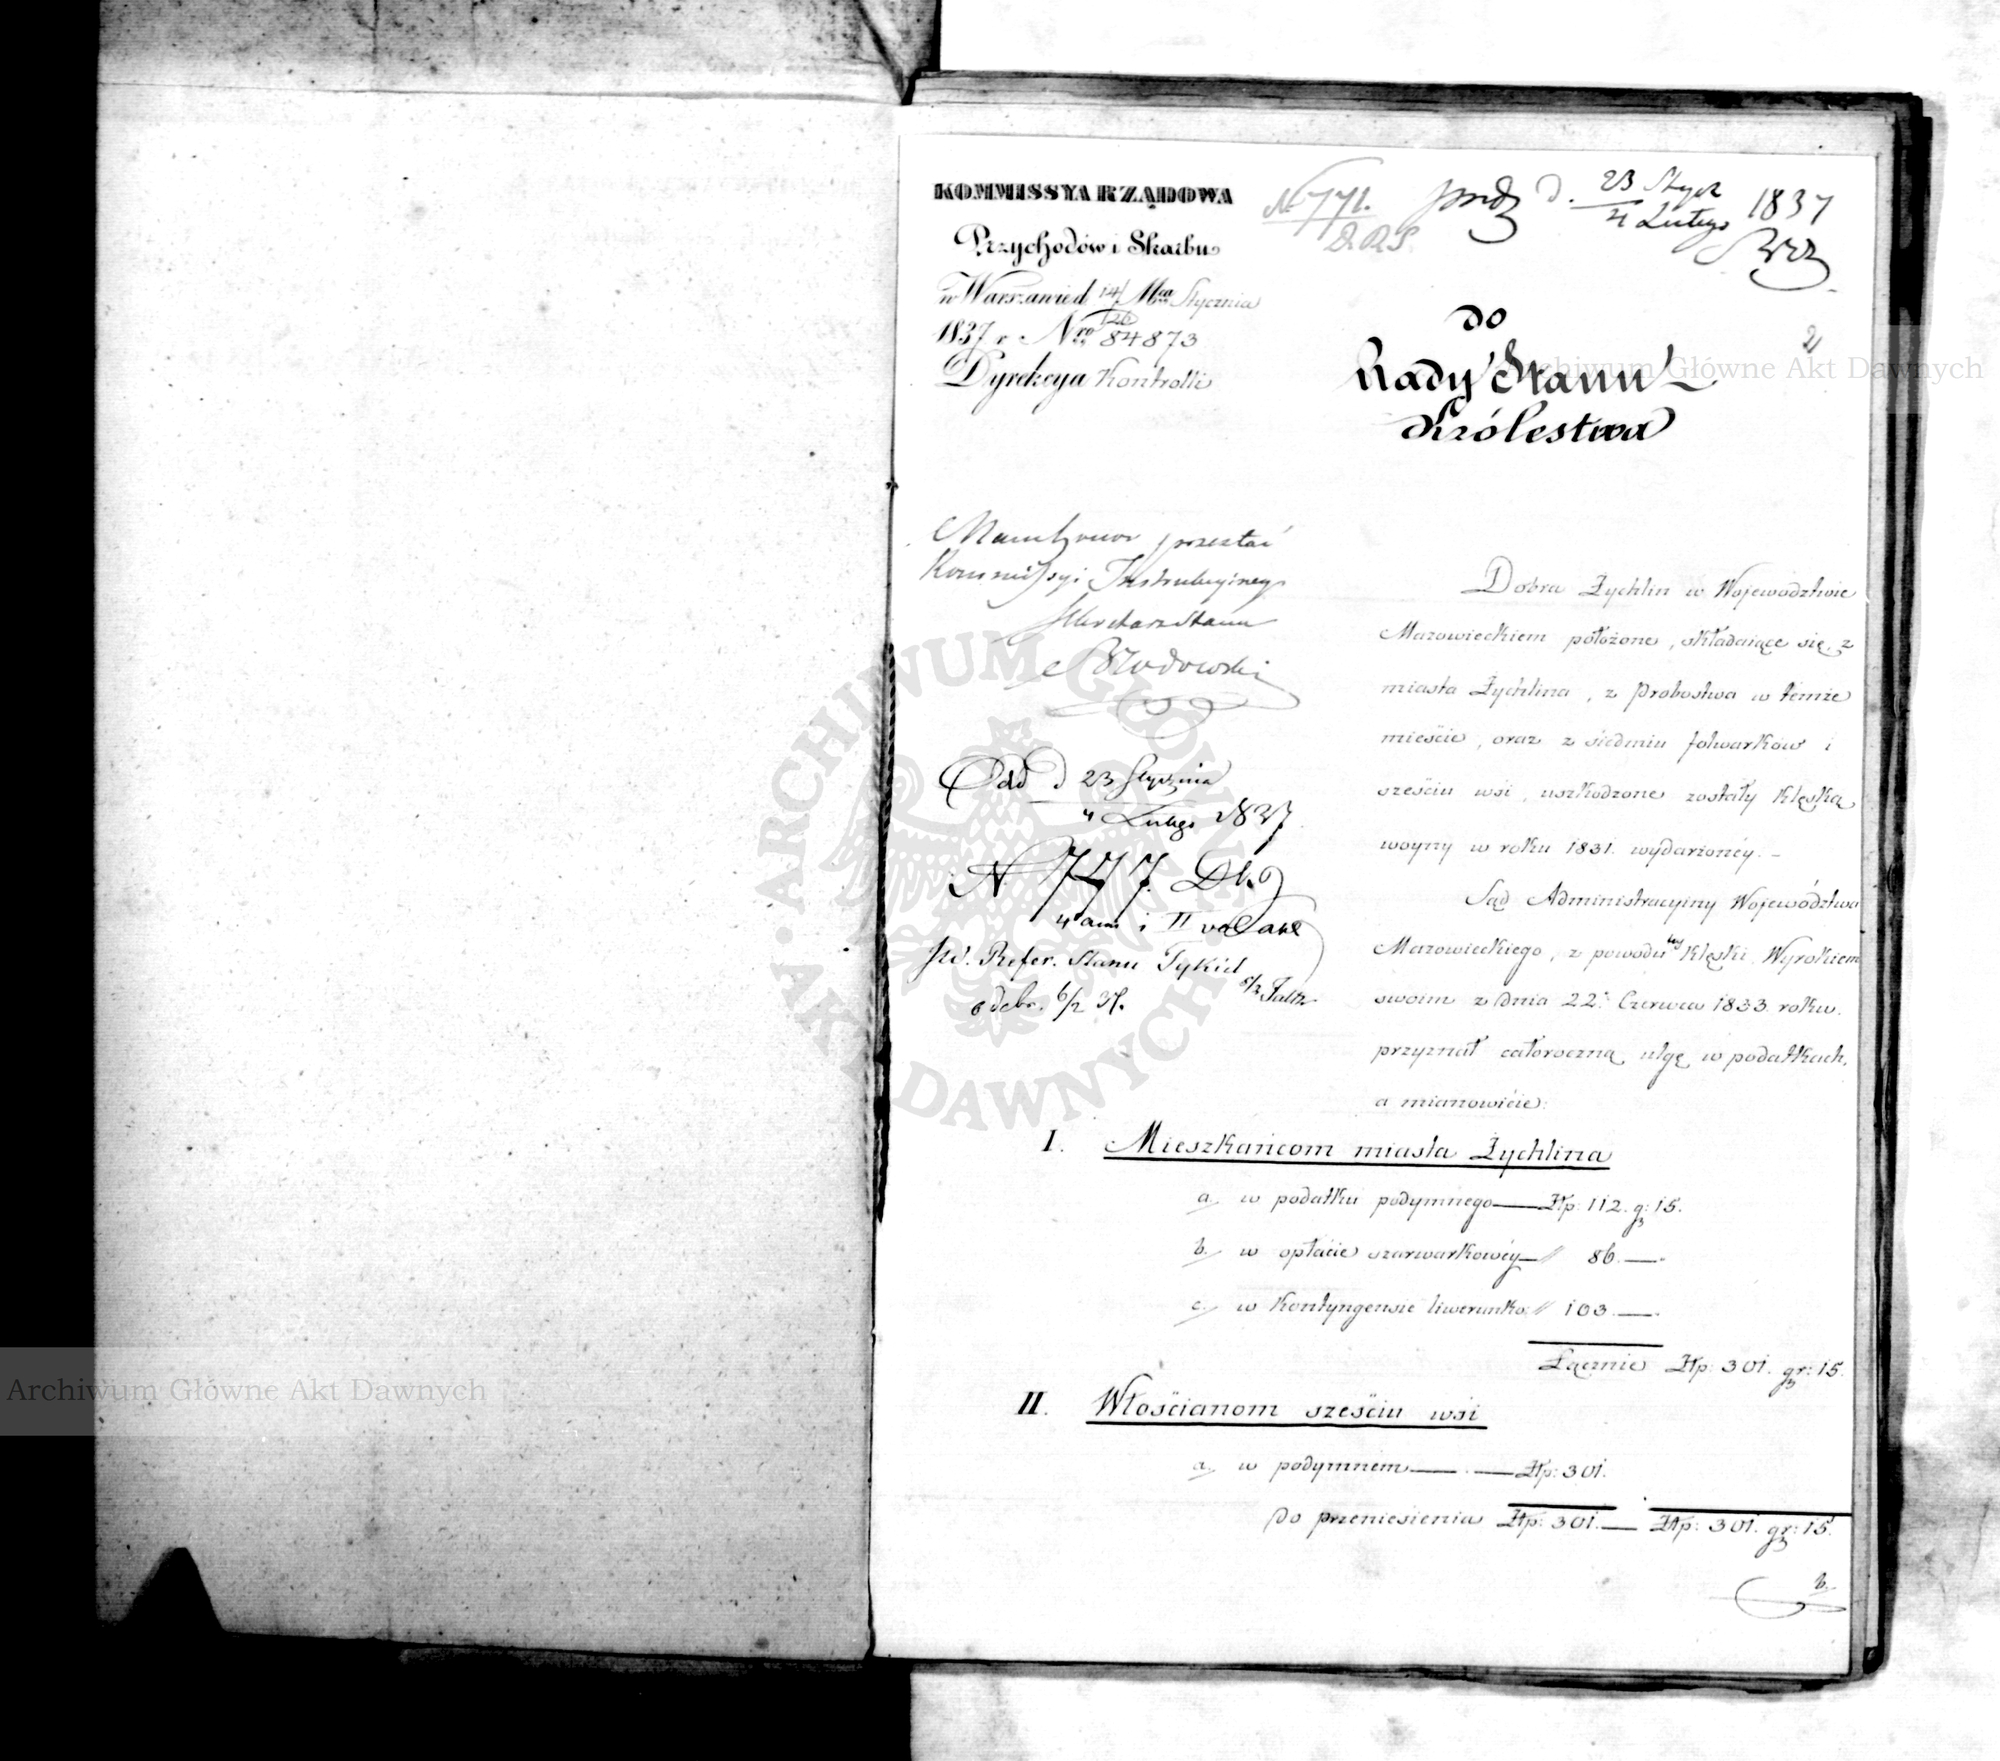 KOMMISSYA RZĄDOWA
Przychodów i Skarbu
w Warszawie d 14/26 Mca Stycznia
1837 r. Nro 84873
Dyrekcya Kontrolli
N. 771.
D.R.S.
d. 23 Stycz 1837
4 Lutego
2
do
Rady Stanu
Królestwa
przesłać
Kommissyi Instrukcyjney
Sekretarz Stanu
Odd d 23 Stycznia
4 Lutego 1837
N 747.
JW. Refer. Stanu
odebr. 6/2 37.
Dobra Żychlin w Województwie
Mazowieckiem położone, składaiące się z
miasta Żychlina, z Probostwa w temże
mieście, oraz z siedmiu folwarków i
sześciu wsi, uszkodzone zostały klęską
woyny w roku 1831. wydarzonéy. –
Sąd Administracyiny Województwa
Mazowieckiego, z powodu tey klęski, Wyrokiem
swoim z dnia 22. Czerwca 1833 roku.
przyznał całoroczną ulgę w podatkach,
a mianowicie:
I. Mieszkańcom miasta Żychlina
a. w podatku podymnego — Złp: 112. gr: 15.
b. w opłacie szarwarkowéy — // 86. —
c. w Kontyngensie liwerunko: // 103. —
Łącznie Złp: 301. gr: 15.
II. Włościanom sześciu wsi
a. w podymnem — . — Złp: 301.
Do przeniesienia Złp: 301. — Złp: 301. gr: 15.
b.
Archiwum Główne Akt Dawnych
Archiwum Główne Akt Dawnych
ARCHIWUM GŁÓWNE • AKT DAWNYCH •